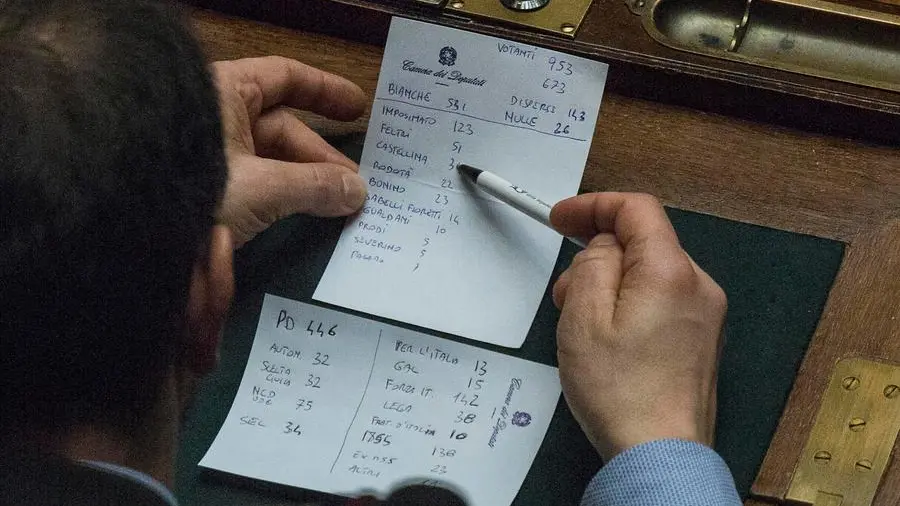 VOTANTI 953
673
Camera dei Deputati
BIANCHE 531
DISPERSI 143
NULLE 26
IMPOSIMATO 123
FELTRI 51
CASTELLINA 3
RODOTÀ 22
BONINO 23
SABELLI FIORETTI 14
GUALDANI 10
PRODI 5
SEVERINO 5
PD 446
AUTON. 32
SCELTA
CIVICA 32
NCD
UDC 75
SEL 34
PER L'ITALIA 13
GAL 15
FORZA IT. 142
LEGA 38
FRAT. D'ITALIA 10
M5S 138
EX M5S 23
ALTRI
Camera dei Deputati